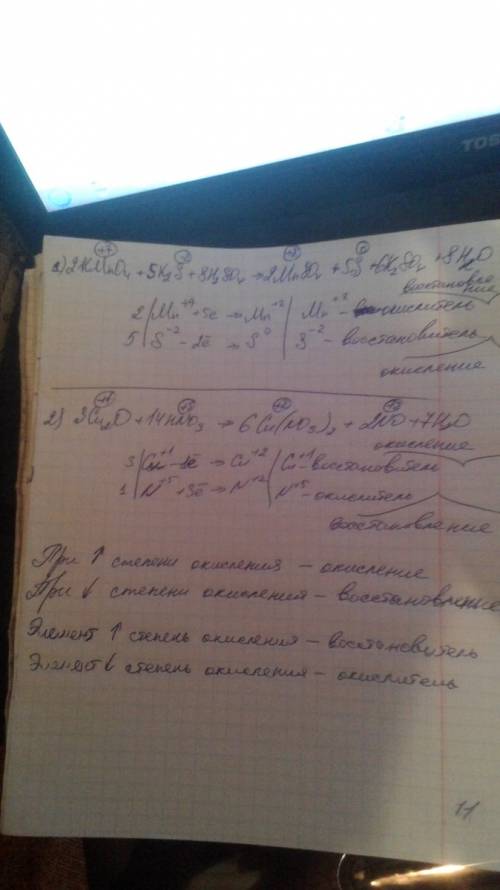 TOS
+7 -2 +2 0
1) 2KMnO₄ + 5K₂S + 8H₂SO₄ → 2MnSO₄ + 5S + 6K₂SO₄ + 8H₂O
восстановление
2 | Mn⁺⁷ + 5е → Mn⁺² | Mn⁺⁷ - окислитель
5 | S⁻² - 2ē → S⁰ | S⁻² - восстановитель
окисление
+1 +5 +2 +2
2) 3Cu₂O + 14HNO₃ → 6Cu(NO₃)₂ + 2NO + 7H₂O
окисление
3 | Cu⁺¹ - 1ē → Cu⁺² | Cu⁺¹ - восстановитель
1 | N⁺⁵ + 3ē → N⁺² | N⁺⁵ - окислитель
восстановление
При ↑ степени окисления – окисление
При ↓ степени окисления – восстановление
Элемент ↑ степень окисления – восстановитель
Элемент ↓ степень окисления – окислитель
11